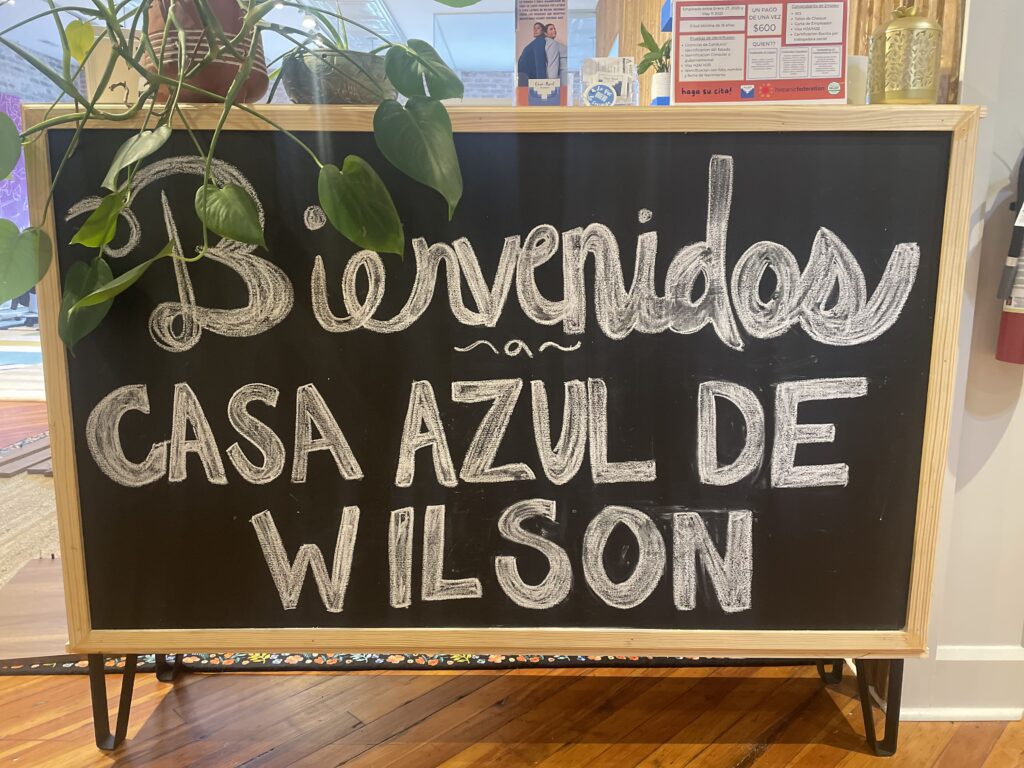 UN PAGO
DE UNA VEZ
$600
QUIEN?
haga su cita!
hispanicfederation
Bienvenidos
a
CASA AZUL DE
WILSON